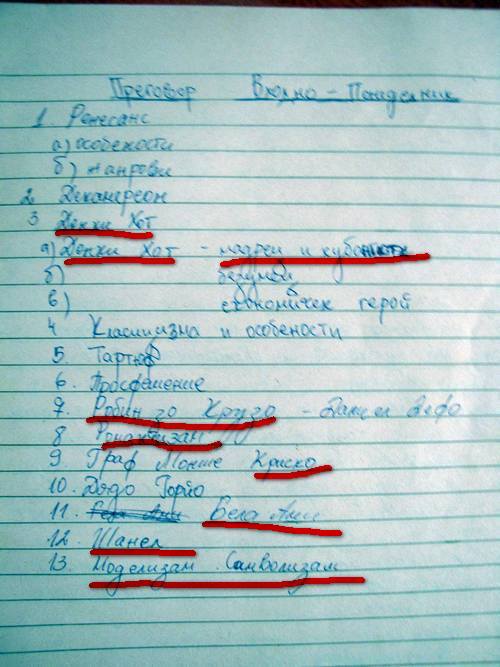 Преговор Входно - Понеделник
1. Ренесанс
а) особености
б) жанрови
2. Декамерон
3 Денки Хот
а) Денки Хот - мадрец и
б) безумец
в) герой
4 Класицизма и особености
5. Тартюф
6. Просвещение
7. Робин зо Крузо - Даниел Дефо
8 Романтизам
9. Граф Монте Криско
10. Дядо Горйо
11. Бела Ами
12. Шанел
13. Моделизам. Символизам